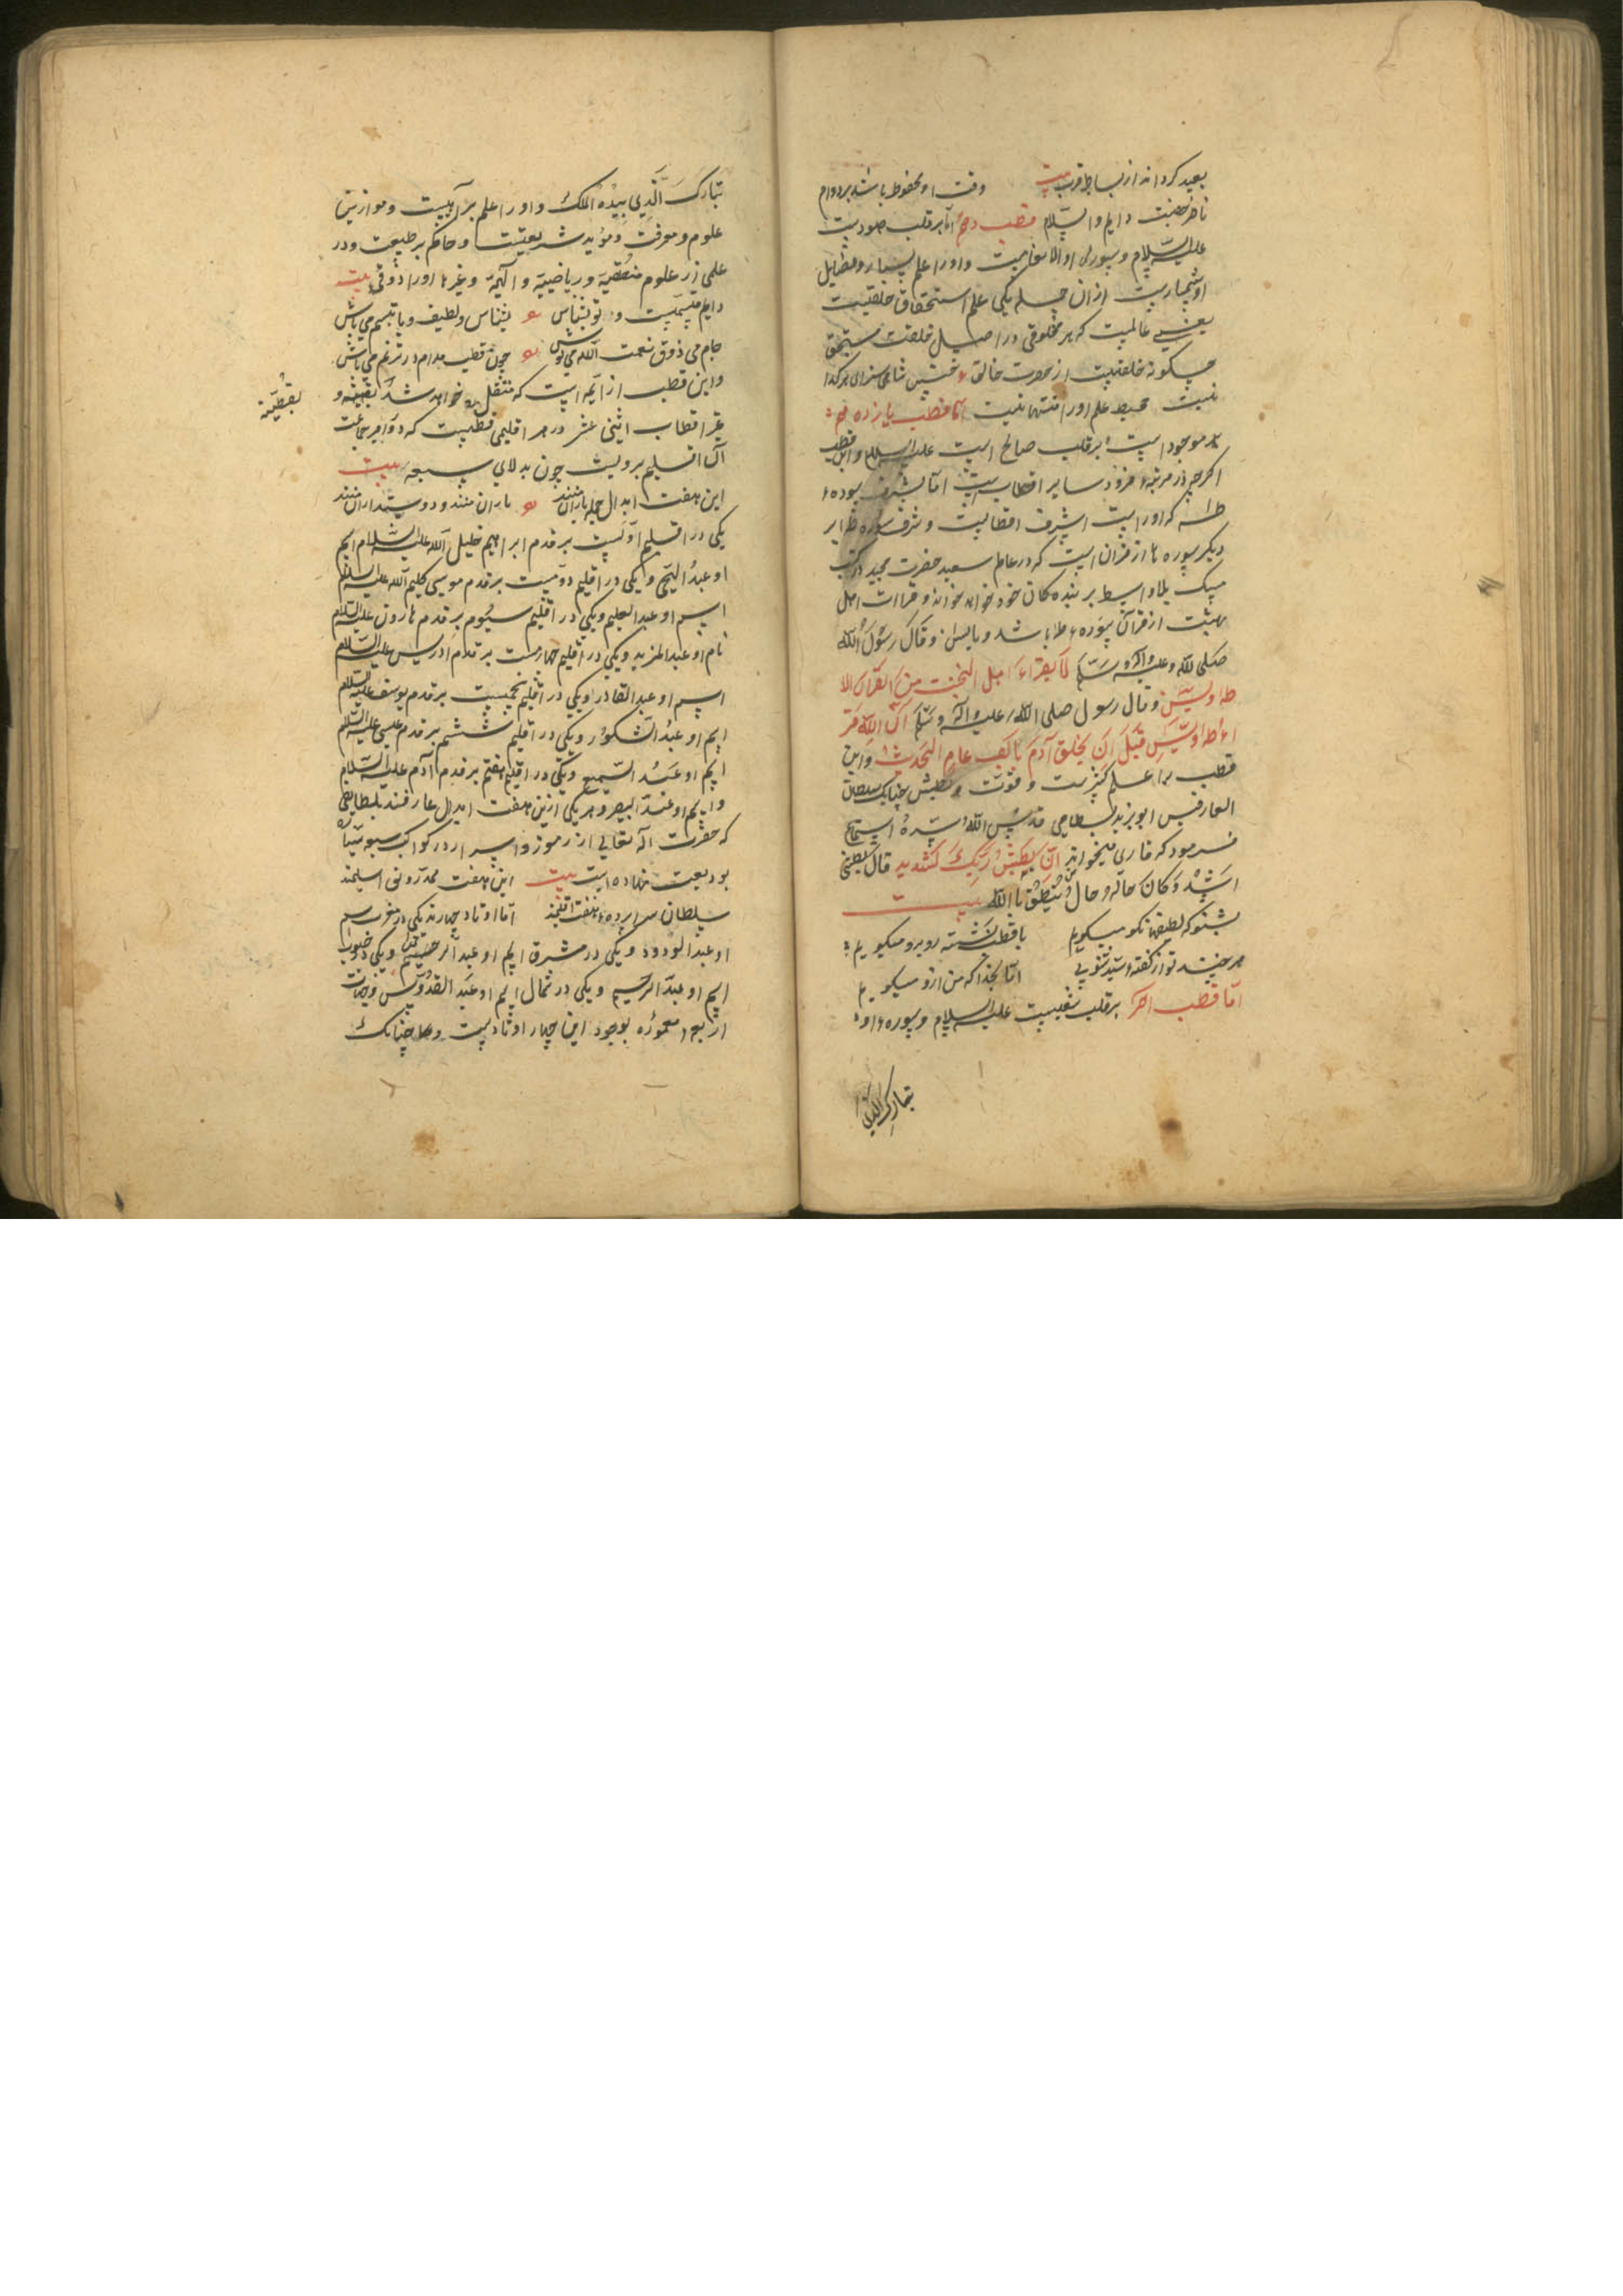 بعید کرداند از بساط قرب بیت وقت او محفوظ باشد بر دوام
ناظر حضرت دایم والسلام قطب دهم اما بر قلب هودست
علیه السلام وسوره او الانعامست واورا علم بسیار وفضایل
او بیشمارست ازان جمله یکی علم استحقاق خلقیت
یعنی عالمیست که هر مخلوقی در اصل خلقت مستحق
چکونه خلقتیست از حضرت خالق
نیست محیط علم اورا منتها نیست اما قطب یازدهم
موجود است برقلب صالح است علیه السلام واین قطب
اکرچه در مرتبه فرود سایر اقطابست اما بشرف سوره
طه که اوراست اشرف اقطابست وشرف سوره طه بر
دیکر سورها از قران است که در عالم سعید حضرت مجید در کثیب
مسک بلا واسطه بر بنده کان خود خواند وقراات اهل
بهشت از قرآن سوره طه باشد ویا یس وقال رسول الله
صلی الله علیه وآله وسلم لا یقراء اهل الجنة من القرآن الا
طه ویس وقال رسول صلی الله علیه وآله وسلم ان الله قر
اء طه ویس قبل ان یخلق آدم بالف عام الحدیث واین
قطب را علم کثیرست وقوت وبطش چنانک سلطان
العارفین ابویزید بسطامی قدس الله سره استماع
فرمود که قاری میخواند ان بطش ربک لشدید قال بطشی
اشد وکان حاله وحال من ینطق بالله بیت
بشنو که لطیفه نکو میکویم با قطب نشسته روبرو میکویم
هرچند تو از کفته سید شنوی اما بخدا که من ازو میکویم
اما قطب آخر برقلب شعیبست علیه السلام وسوره او
تبارک الذی
تبارک الذی بیده الملک واورا علم براهینست وموازین
علوم ومعرفت ومؤید شریعتست وحاکم برطبیعت ودر
علمی از علوم منطقیة وریاضیة والٓهیة وغیرها اورا ذوقی بیت
دایم متبسمست و تو بشناس بشناس ولطیف وبا تبسم می باش
جام می ذوق نعمت الله می نوش چون قطب مدام در ترنم می باش
واین قطب از ایمه است که منتقل خواهد شد بقطبیة و
بقطبیّة
غیر اقطاب اثنی عشر در هر اقلیمی قطبیست که دوایر جماعت
آن اقلیم برویست چون بدلای سبعه بیت
این هفت ابدال جمله یاران منند یاران منند ودوستداران منند
یکی در اقلیم اولست برقدم ابراهیم خلیل الله علیه السلام اسم
او عبد الحی ویکی در اقلیم دومست برقدم موسی کلیم الله علیه السلام
اسم او عبد العلیم ویکی در اقلیم سیوم برقدم هارون علیه السلام
نام او عبد المرید ویکی در اقلیم چهارمست برقدم ادریس علیه السلام
اسم او عبد القادر ویکی در اقلیم پنجمست برقدم یوسف علیه السلام
اسم او عبد الشکور ویکی در اقلیم ششم برقدم عیسی علیه السلام
اسم او عبد السمیع ویکی در اقلیم هفتم برقدم آدم علیه السلام
واسم او عبد البصیر وهر یکی ازین هفت ابدال عارفند بلطایفی
که حضرت اله تعالی از رموز واسرار در کواکب سبعه سیاره
بودیعت نهاده است بیت این هفت مدرونی اسلیمند
سلطان سراپرده هفت اقلیمند اما اوتاد چهارند یکی در مغرب اسم
او عبد الودود ویکی در مشرق اسم او عبد الرحمن ویکی در جنوب
اسم او عبد الرحیم ویکی در شمال اسم او عبد القدوس وجهات
اربعه معموره بوجود این چهار اوتادست چنانک